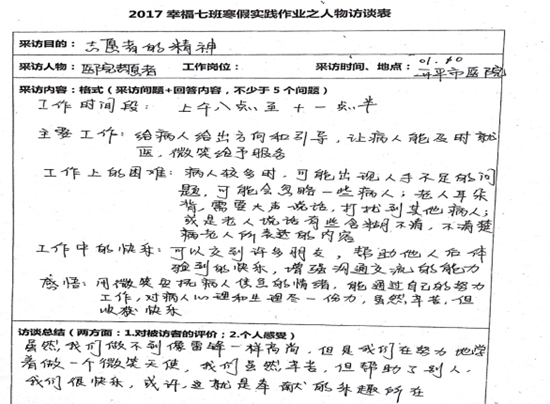 2017 幸福七班寒假实践作业之人物访谈表
采访目的： 志愿者的精神
采访人物：医院志愿者 工作岗位： 采访时间、地点：01.40 开平市医院
采访内容：格式（采访问题+回答内容，不少于 5 个问题）
工作时间段：上午八点至十一点半
主要工作：给病人给出方向和引导，让病人能及时就
医，微笑给予服务
工作上的困难：病人较多时，可能出现人手不足的问
题，可能会忽略一些病人；老人耳朵
背，需要大声说话，打扰到其他病人；
或是老人说话有些含糊不清，不清楚
病老人所表达的内容
工作中的快乐：可以交到许多朋友，帮助他人后体
验到的快乐，增强沟通交流的能力
感悟：用微笑安抚病人焦急的情绪，能通过自己的努力
工作，对病人心理和生理尽一份力，虽然辛苦，但
收获快乐
访谈总结（两方面：1.对被访者的评价；2.个人感受）
虽然我们做不到像雷锋一样高尚，但是我们在努力地学
着做一个微笑天使，我们虽然辛苦，但帮助了别人，
我们很快乐，或许，这就是奉献的乐趣所在